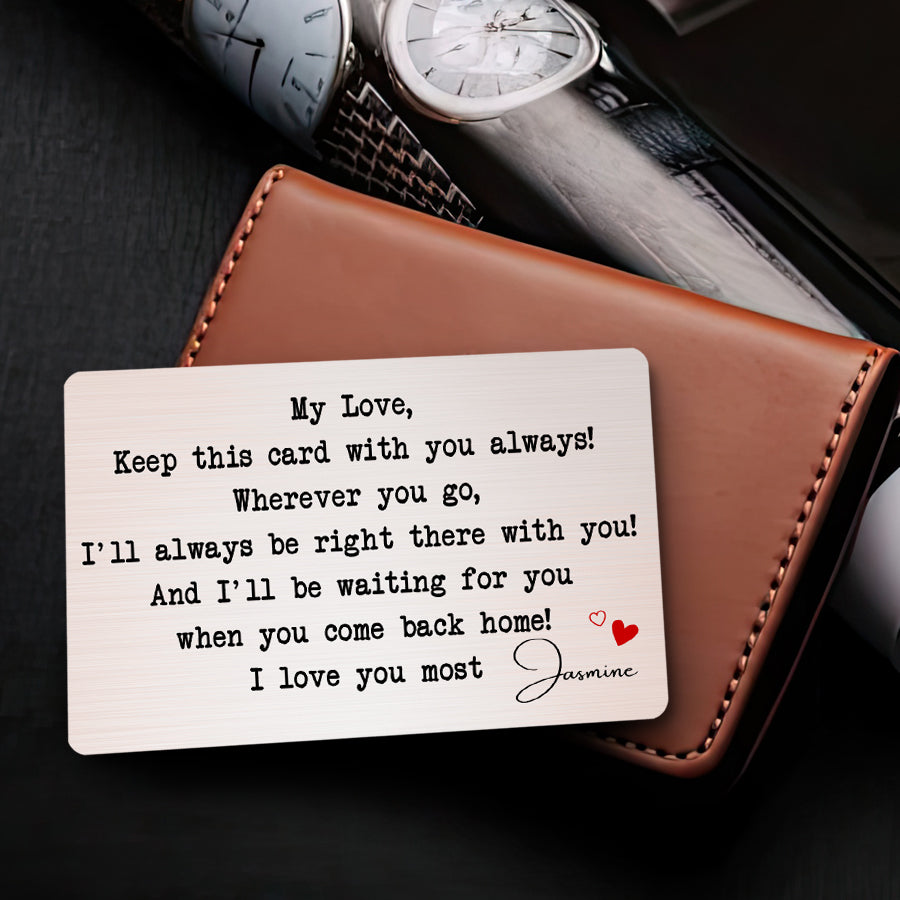 My Love,
Keep this card with you always!
Wherever you go,
I'll always be right there with you!
And I'll be waiting for you
when you come back home!
I love you most Jasmine